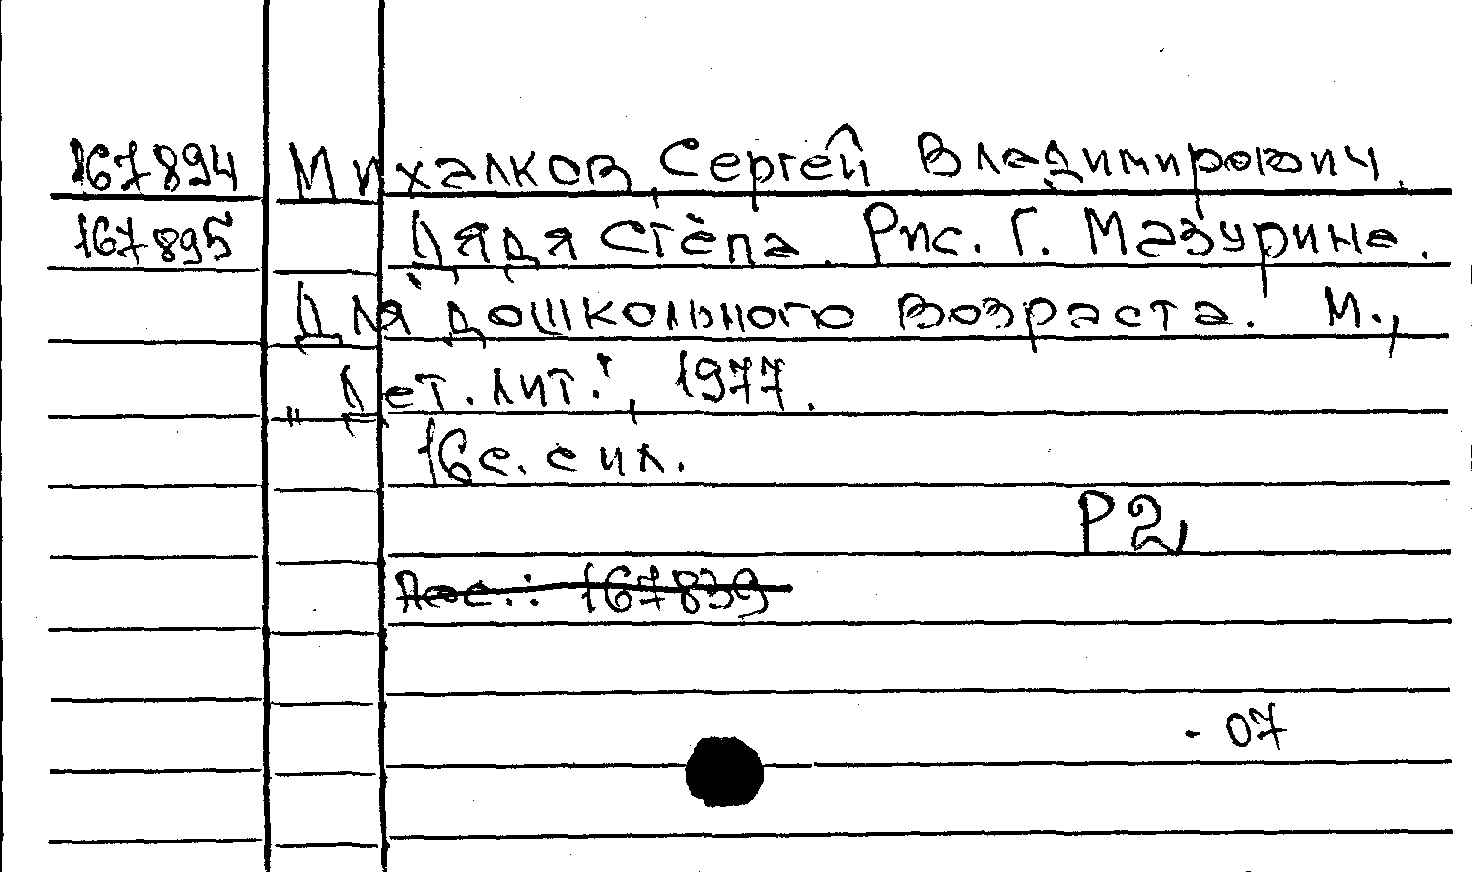 167894 Михалков, Сергей Владимирович.
167895 Дядя Стёпа. Рис. Г. Мазурина.
Для дошкольного возраста. М.,
„Дет. лит.", 1977.
16 с. с ил.
Р2
167839
- 07